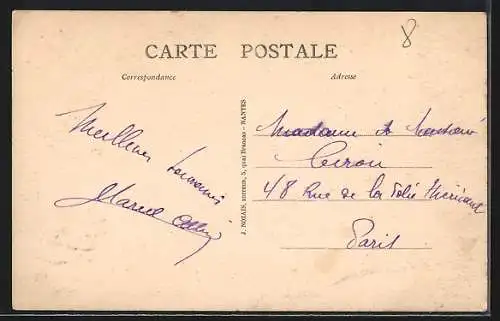 8
CARTE POSTALE
Correspondance
Adresse
Meilleurs Souvenirs
Marcel
J. NOZAIS, EDITEUR, 5, quai Brancas - NANTES
Madame &
48 Rue de la Folie Méricourt
Paris